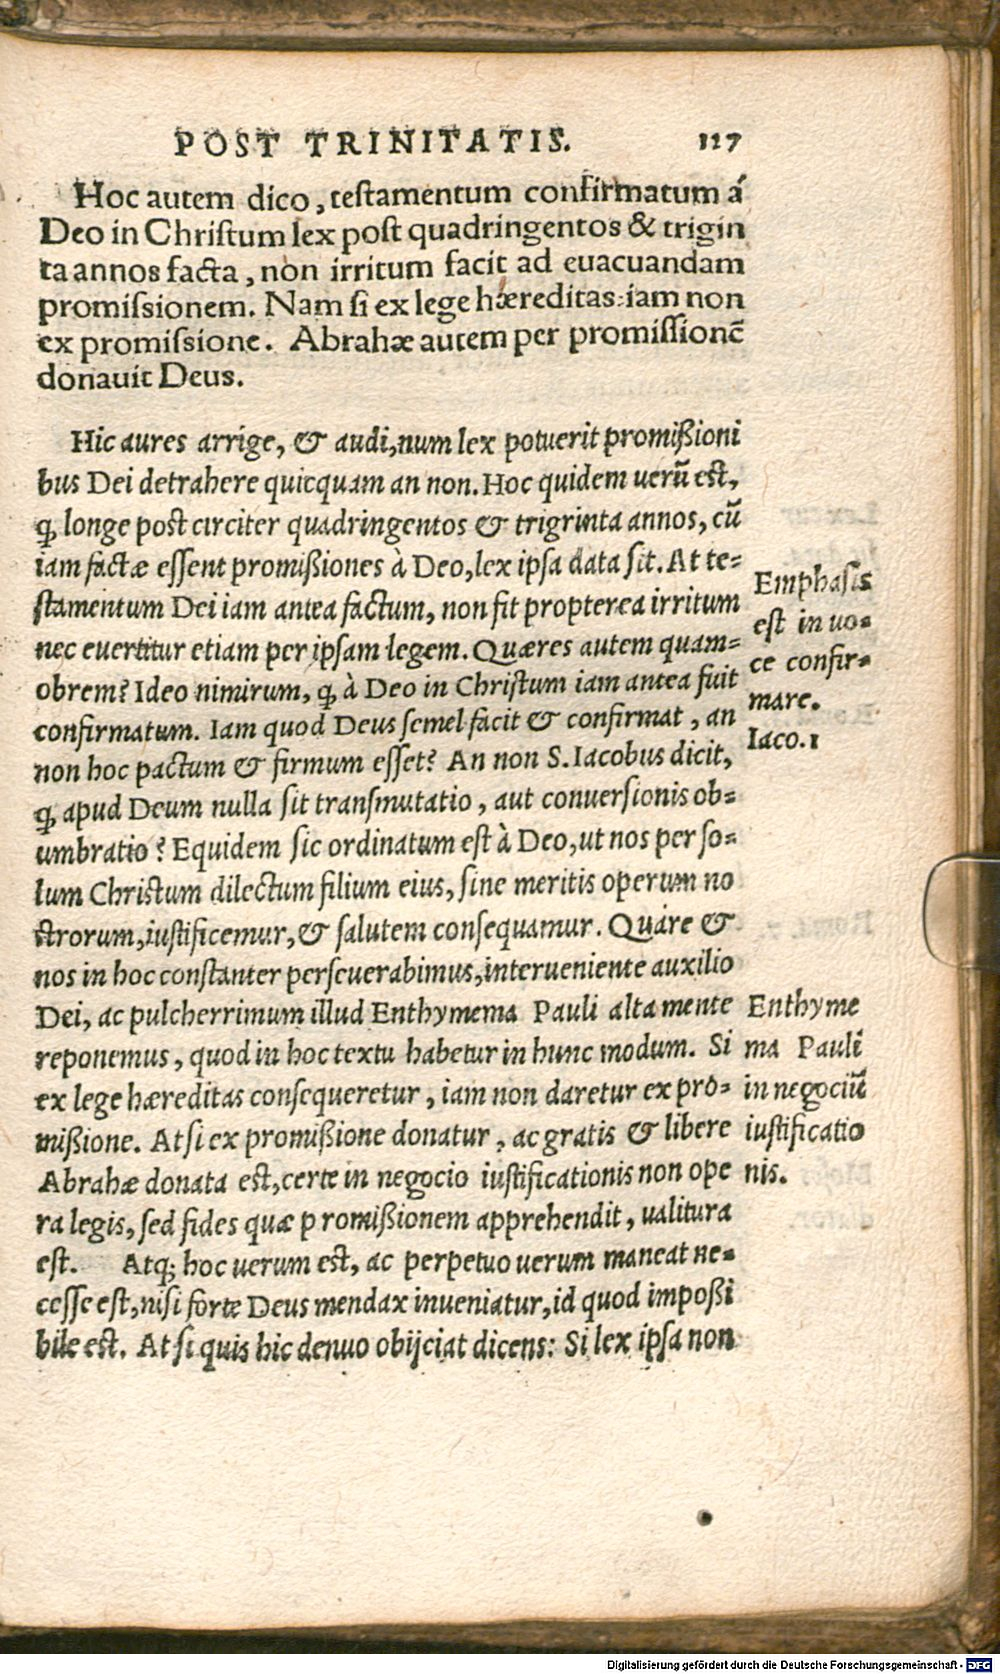 POST TRINITATIS. 127
Hoc autem dico, testamentum confirmatum á
Deo in Christum lex post quadringentos & trigin
ta annos facta, non irritum facit ad euacuandam
promissionem. Nam si ex lege hæreditas: iam non
ex promissione. Abrahæ autem per promissionē
donauit Deus.
Hic aures arrige, & audi, num lex potuerit promißioni
bus Dei detrahere quicquam an non. Hoc quidem uerū est,
ꝙ longe post circiter quadringentos & trigrinta annos, cū
iam factæ essent promißiones à Deo, lex ipsa data sit. At te-
stamentum Dei iam antea factum, non fit propterea irritum
nec euertitur etiam per ipsam legem. Quæres autem quam-
obrem? Ideo nimirum, ꝙ à Deo in Christum iam antea fuit
confirmatum. Iam quod Deus semel facit & confirmat, an
non hoc pactum & firmum esset? An non S. Iacobus dicit,
ꝙ apud Deum nulla sit transmutatio, aut conuersionis ob-
umbratio? Equidem sic ordinatum est à Deo, ut nos per so-
lum Christum dilectum filium eius, sine meritis operum no
strorum, iustificemur, & salutem consequamur. Quare &
nos in hoc constanter perseuerabimus, interueniente auxilio
Dei, ac pulcherrimum illud Enthymema Pauli alta mente
reponemus, quod in hoc textu habetur in hunc modum. Si
ex lege hæreditas consequeretur, iam non daretur ex pro-
mißione. At si ex promißione donatur, ac gratis & libere
Abrahæ donata est, certe in negocio iustificationis non ope
ra legis, sed fides quæ promißionem apprehendit, ualitura
est. Atq; hoc uerum est, ac perpetuo uerum maneat ne-
cesse est, nisi forte Deus mendax inueniatur, id quod impoßi
bile est. At si quis hic denuo obijciat dicens: Si lex ipsa non
Emphasis
est in uo-
ce confir-
mare.
Iaco. 1
Enthyme
ma Pauli
in negociū
iustificatio
nis.
Digitalisierung gefördert durch die Deutsche Forschungsgemeinschaft - DFG